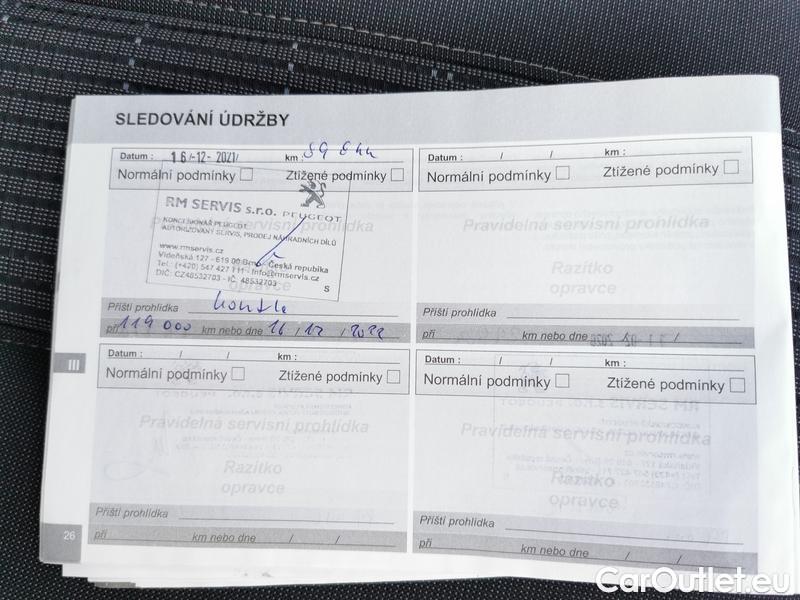 SLEDOVÁNÍ ÚDRŽBY
Datum : 16/-12- 2021/ km : 89 844
Normální podmínky Ztížené podmínky
RM SERVIS s.r.o. PEUGEOT
KONCESIONÁŘ PEUGEOT
AUTORIZOVANÝ SERVIS, PRODEJ NÁHRADNÍCH DÍLŮ
www.rmservis.cz
Vídeňská 127 - 619 00 Brno, Česká republika
Tel.: (+420) 547 427 111 - info@rmservis.cz
DIČ: CZ48532703 - IČ: 48532703
S
Příští prohlídka
při 119 000 km nebo dne 16 / 12 / 2022
Datum : / / km :
Normální podmínky Ztížené podmínky
Pravidelná servisní prohlídka
Razítko
opravce
Příští prohlídka
při km nebo dne / /
III
Datum : / / km :
Normální podmínky Ztížené podmínky
Pravidelná servisní prohlídka
Razítko
opravce
Příští prohlídka
při km nebo dne / /
Datum : / / km :
Normální podmínky Ztížené podmínky
Pravidelná servisní prohlídka
Razítko
opravce
Příští prohlídka
při km nebo dne / /
26
CarOutlet.eu